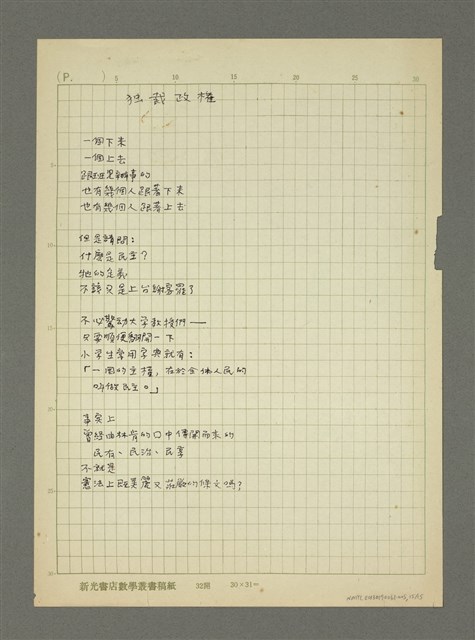 (P.　　)
5
10
15
20
25
30
独裁政權
一個下來
一個上去
跟班是辦事的
也有幾個人跟著下來
也有幾個人跟著上去
但是請問：
什麼是民主？
牠的定義
不錯又是上台謝幕罷了
不必驚动大学教授們——
只要順便翻開一下
小学生常用字典就有：
「一國的主權，在於全体人民的
叫做民主。」
事实上
曾經由林肯的口中傳聞而來的
民有、民治、民享
不就是
憲法上既美麗又莊嚴的條文嗎？
5
10
15
20
25
30
新光書店數學叢書稿紙　32開　20×31＝